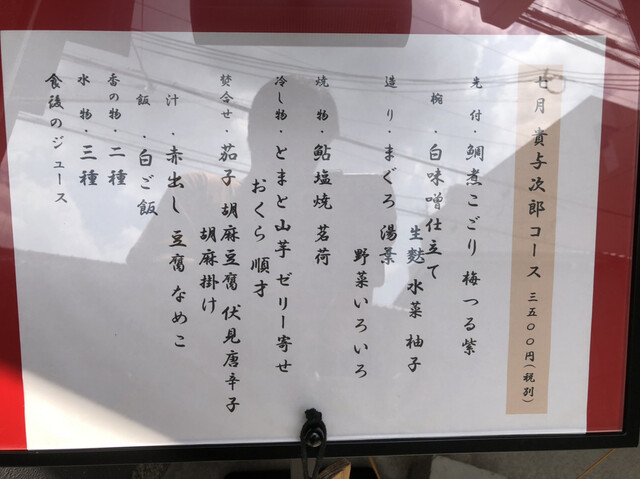 七月 貴与次郎コース 三五〇〇円(税別)
先付・鯛煮こごり 梅つる紫
椀・白味噌仕立て
生麩 水菜 柚子
造り・まぐろ 湯葉
野菜いろいろ
焼物・鮎塩焼 茗荷
冷し物・とまと 山芋 ゼリー寄せ
おくら 順才
焚合せ・茄子 胡麻豆腐 伏見唐辛子
胡麻掛け
汁・赤出し 豆腐 なめこ
飯・白ご飯
香の物・二種
水物・三種
食後のジュース